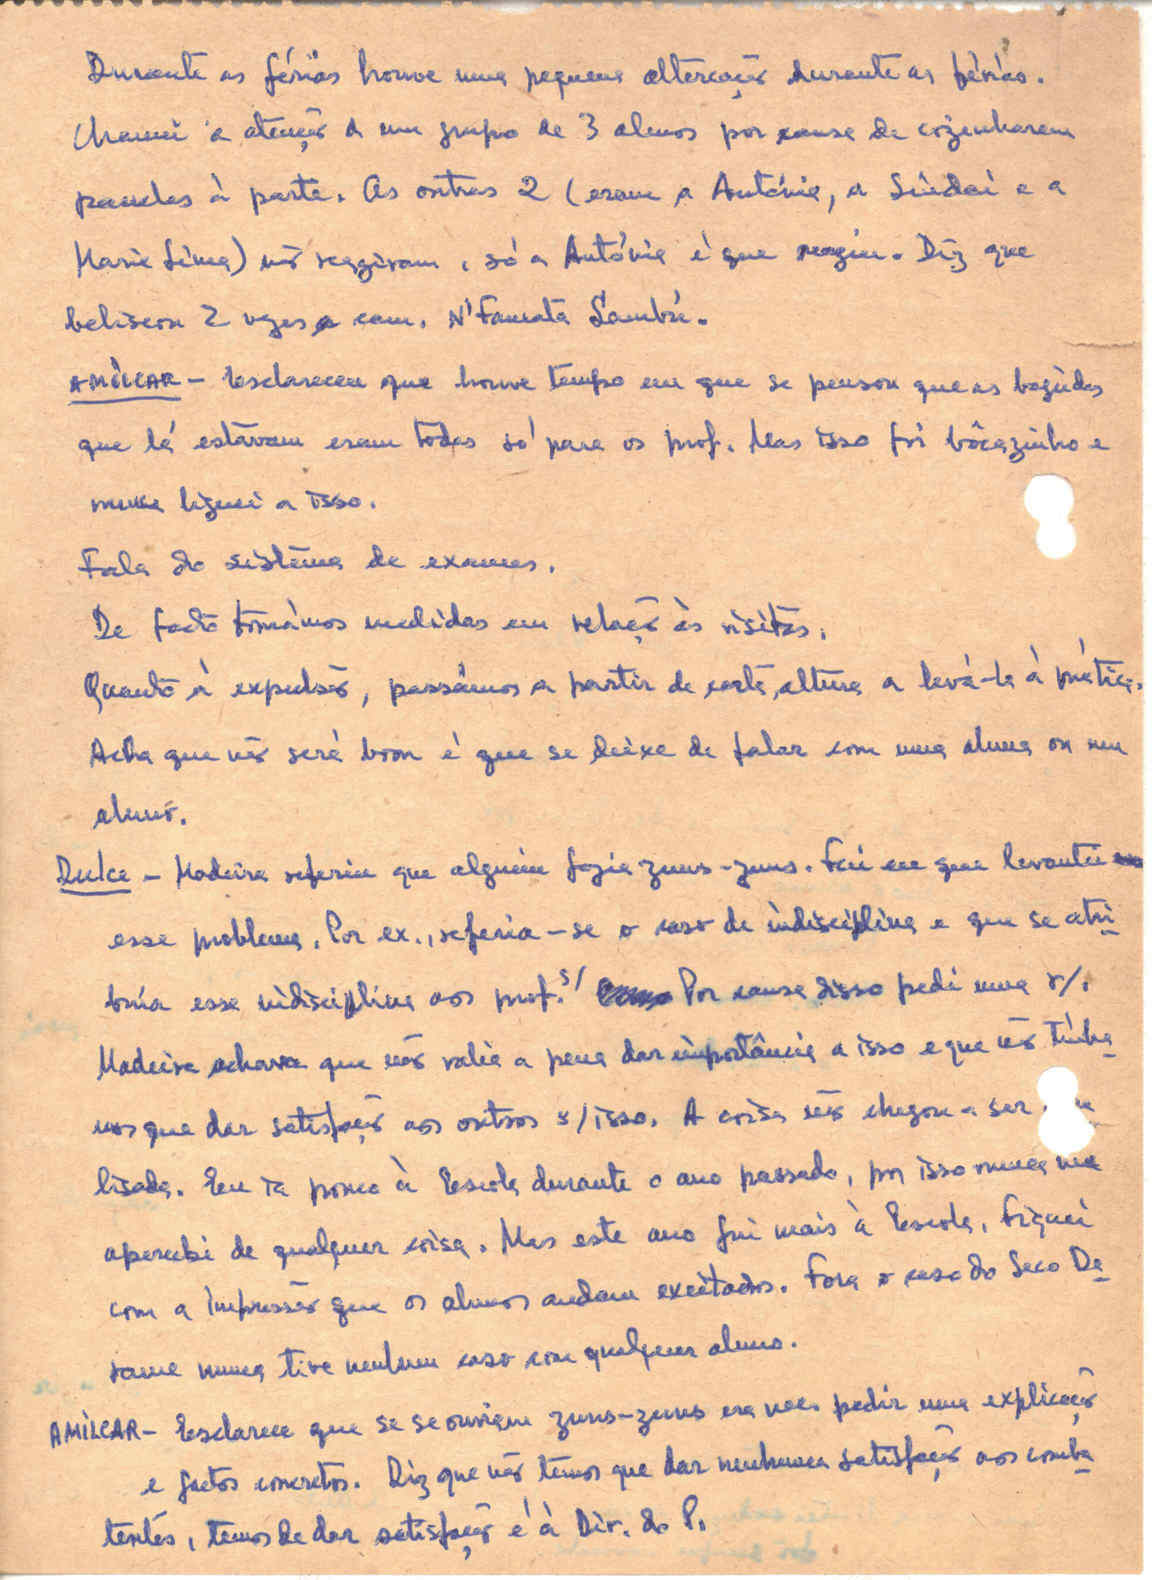 Durante as férias houve uma pequena altercação durante as férias.
Chamei a atenção de um grupo de 3 alunos por causa de cozinharem
panelas à parte. As outras 2 (eram a Antónia, a Sindai e a
Maria Lima) não reagiram, só a Antónia é que reagiu. Diz que
beliscou 2 vezes a cam. N'Famata Sambú.
AMÍLCAR - Esclareceu que houve tempo em que se pensou que as bajudas
que lá estavam eram todas só para os prof. Mas isso foi bôcazinho e
nunca liguei a isso.
Fala do sistema de exames.
De facto tomámos medidas em relação às visitas.
Quanto à expulsão, passámos a partir de certa altura a levá-la à prática.
Acha que não será bom é que se deixe de falar com uma aluna ou um
aluno.
Dulce - Madeira referiu que alguém fazia zuns-zuns. Fui eu que levantei
esse problema. Por ex., referia-se o caso de indisciplina e que se atri
buía essa indisciplina aos prof.s/ Por causa disso pedi uma r/.
Madeira achava que não valia a pena dar importância a isso e que não tinha
mos que dar satisfação aos outros s/ isso. A coisa não chegou a ser
lisada. Eu ia pouco à Escola durante o ano passado, por isso nunca me
apercebi de qualquer coisa. Mas este ano fui mais à Escola. Fiquei
com a impressão que os alunos andam excitados. Fora o caso do Seco Da
rame nunca tive nenhum caso com qualquer aluno.
AMÍLCAR - Esclarece que se se ouviam zuns-zuns era nec. pedir uma explicação
e factos concretos. Diz que não temos que dar nenhuma satisfação aos comba
tentes, temos de dar satisfação é à Dir. do P.